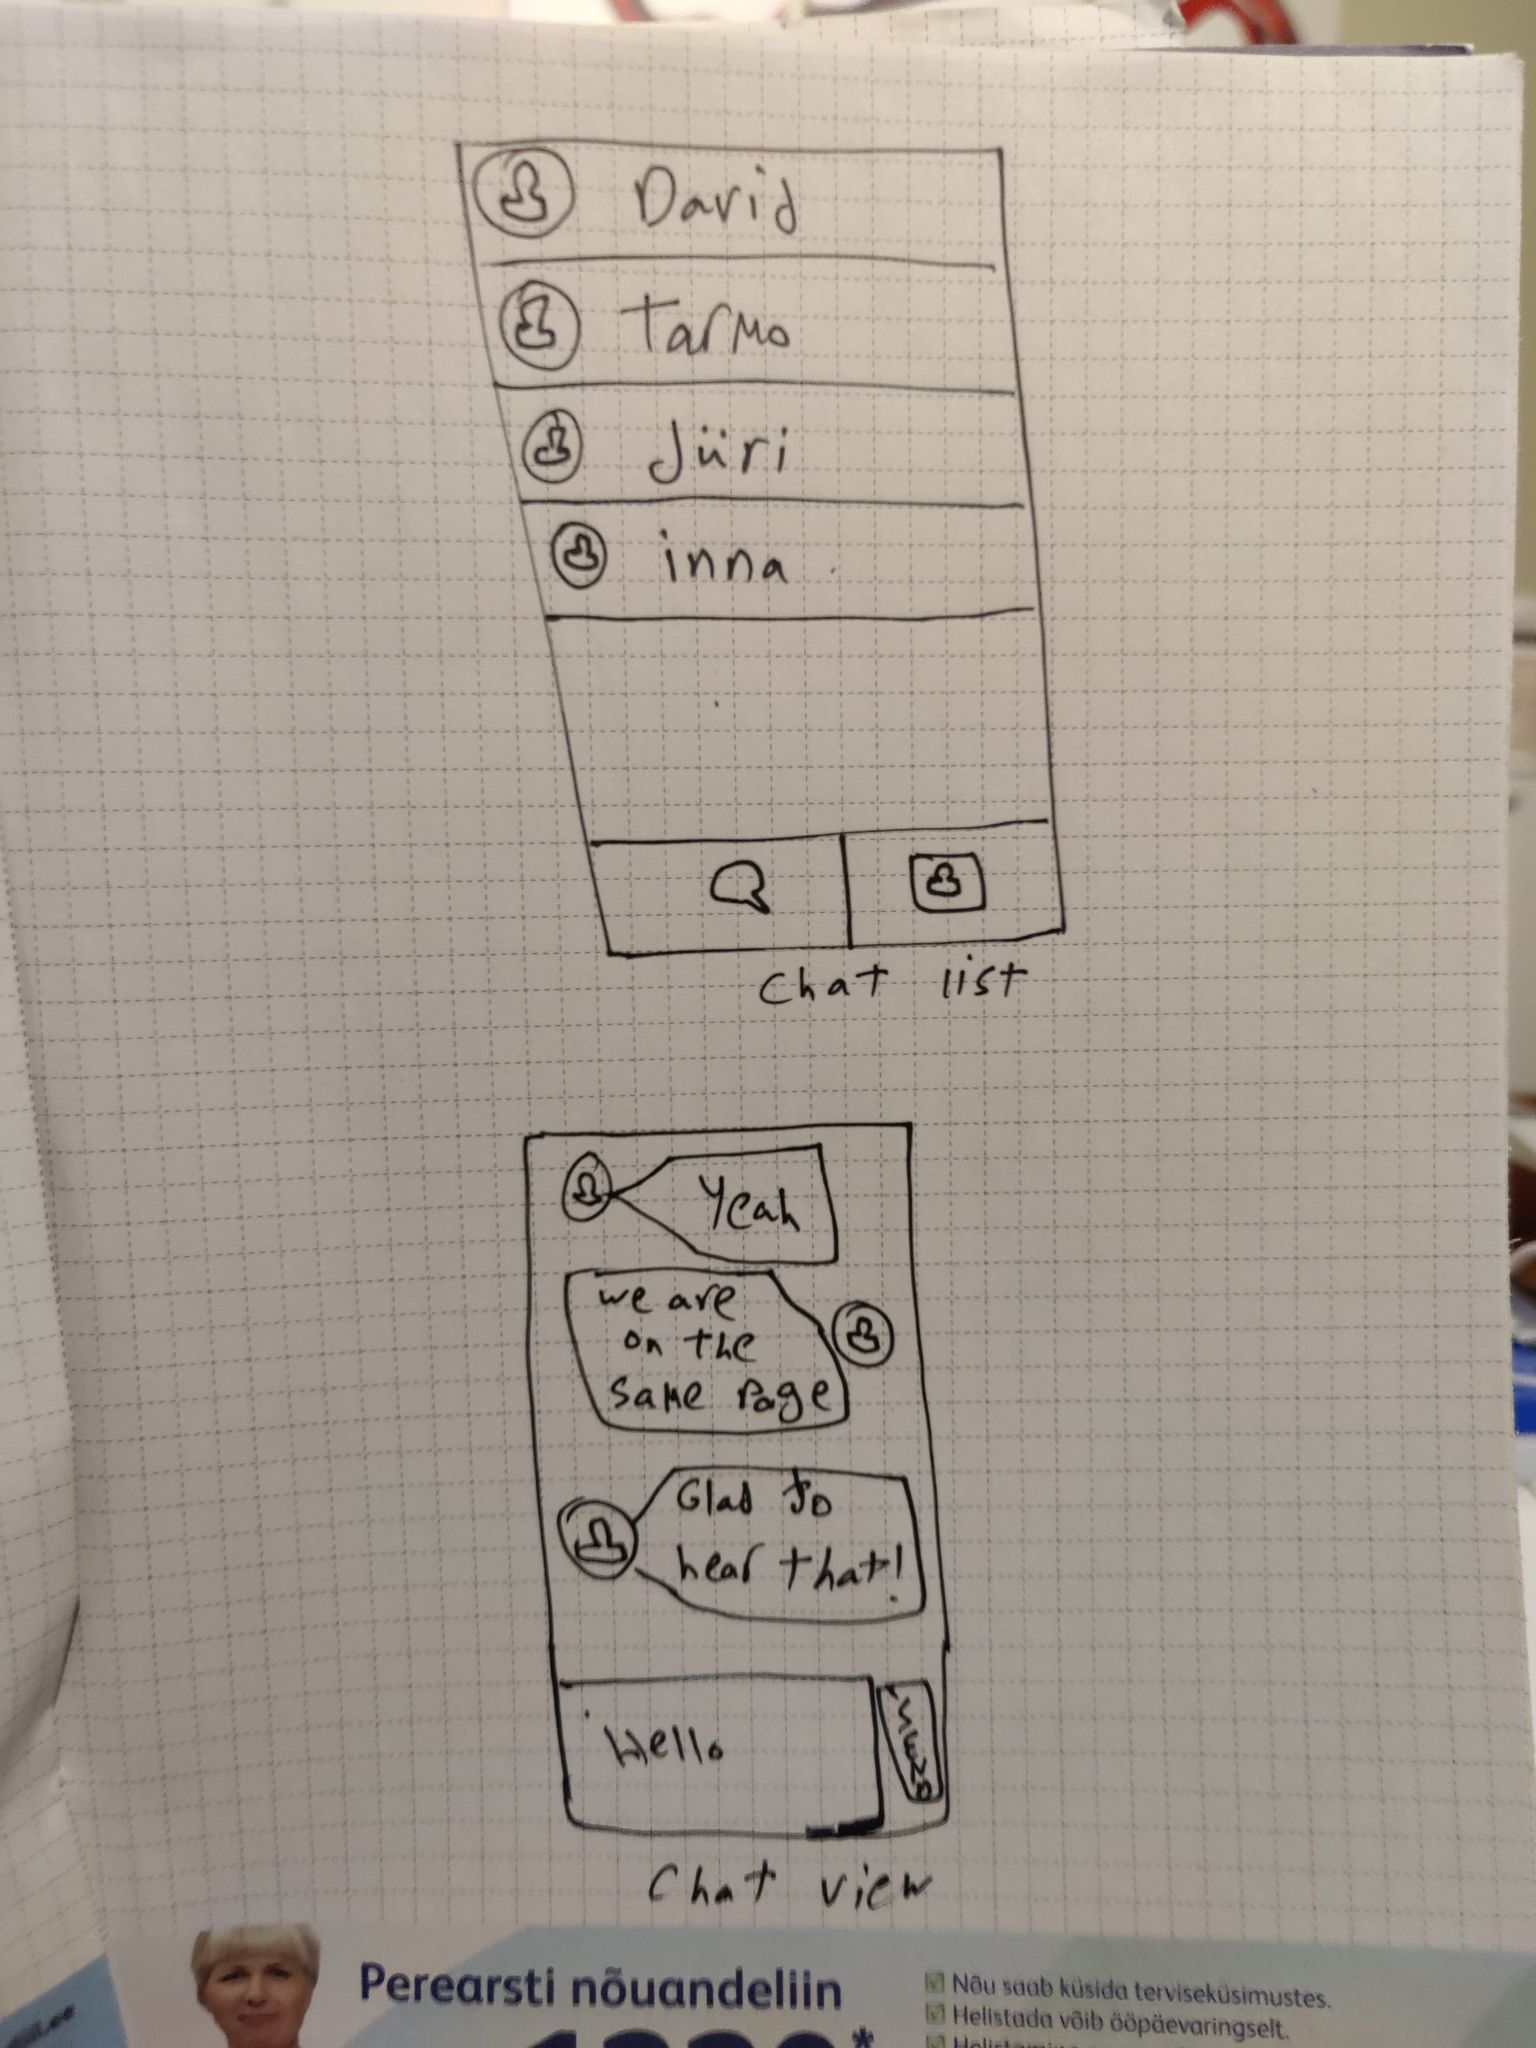 David
Tarmo
Jüri
inna
Chat list
Yeah
we are
on the
same page
Glad to
hear that!
Hello
Chat view
Perearsti nõuandeliin
Nõu saab küsida terviseküsimustes.
Helistada võib ööpäevaringselt.